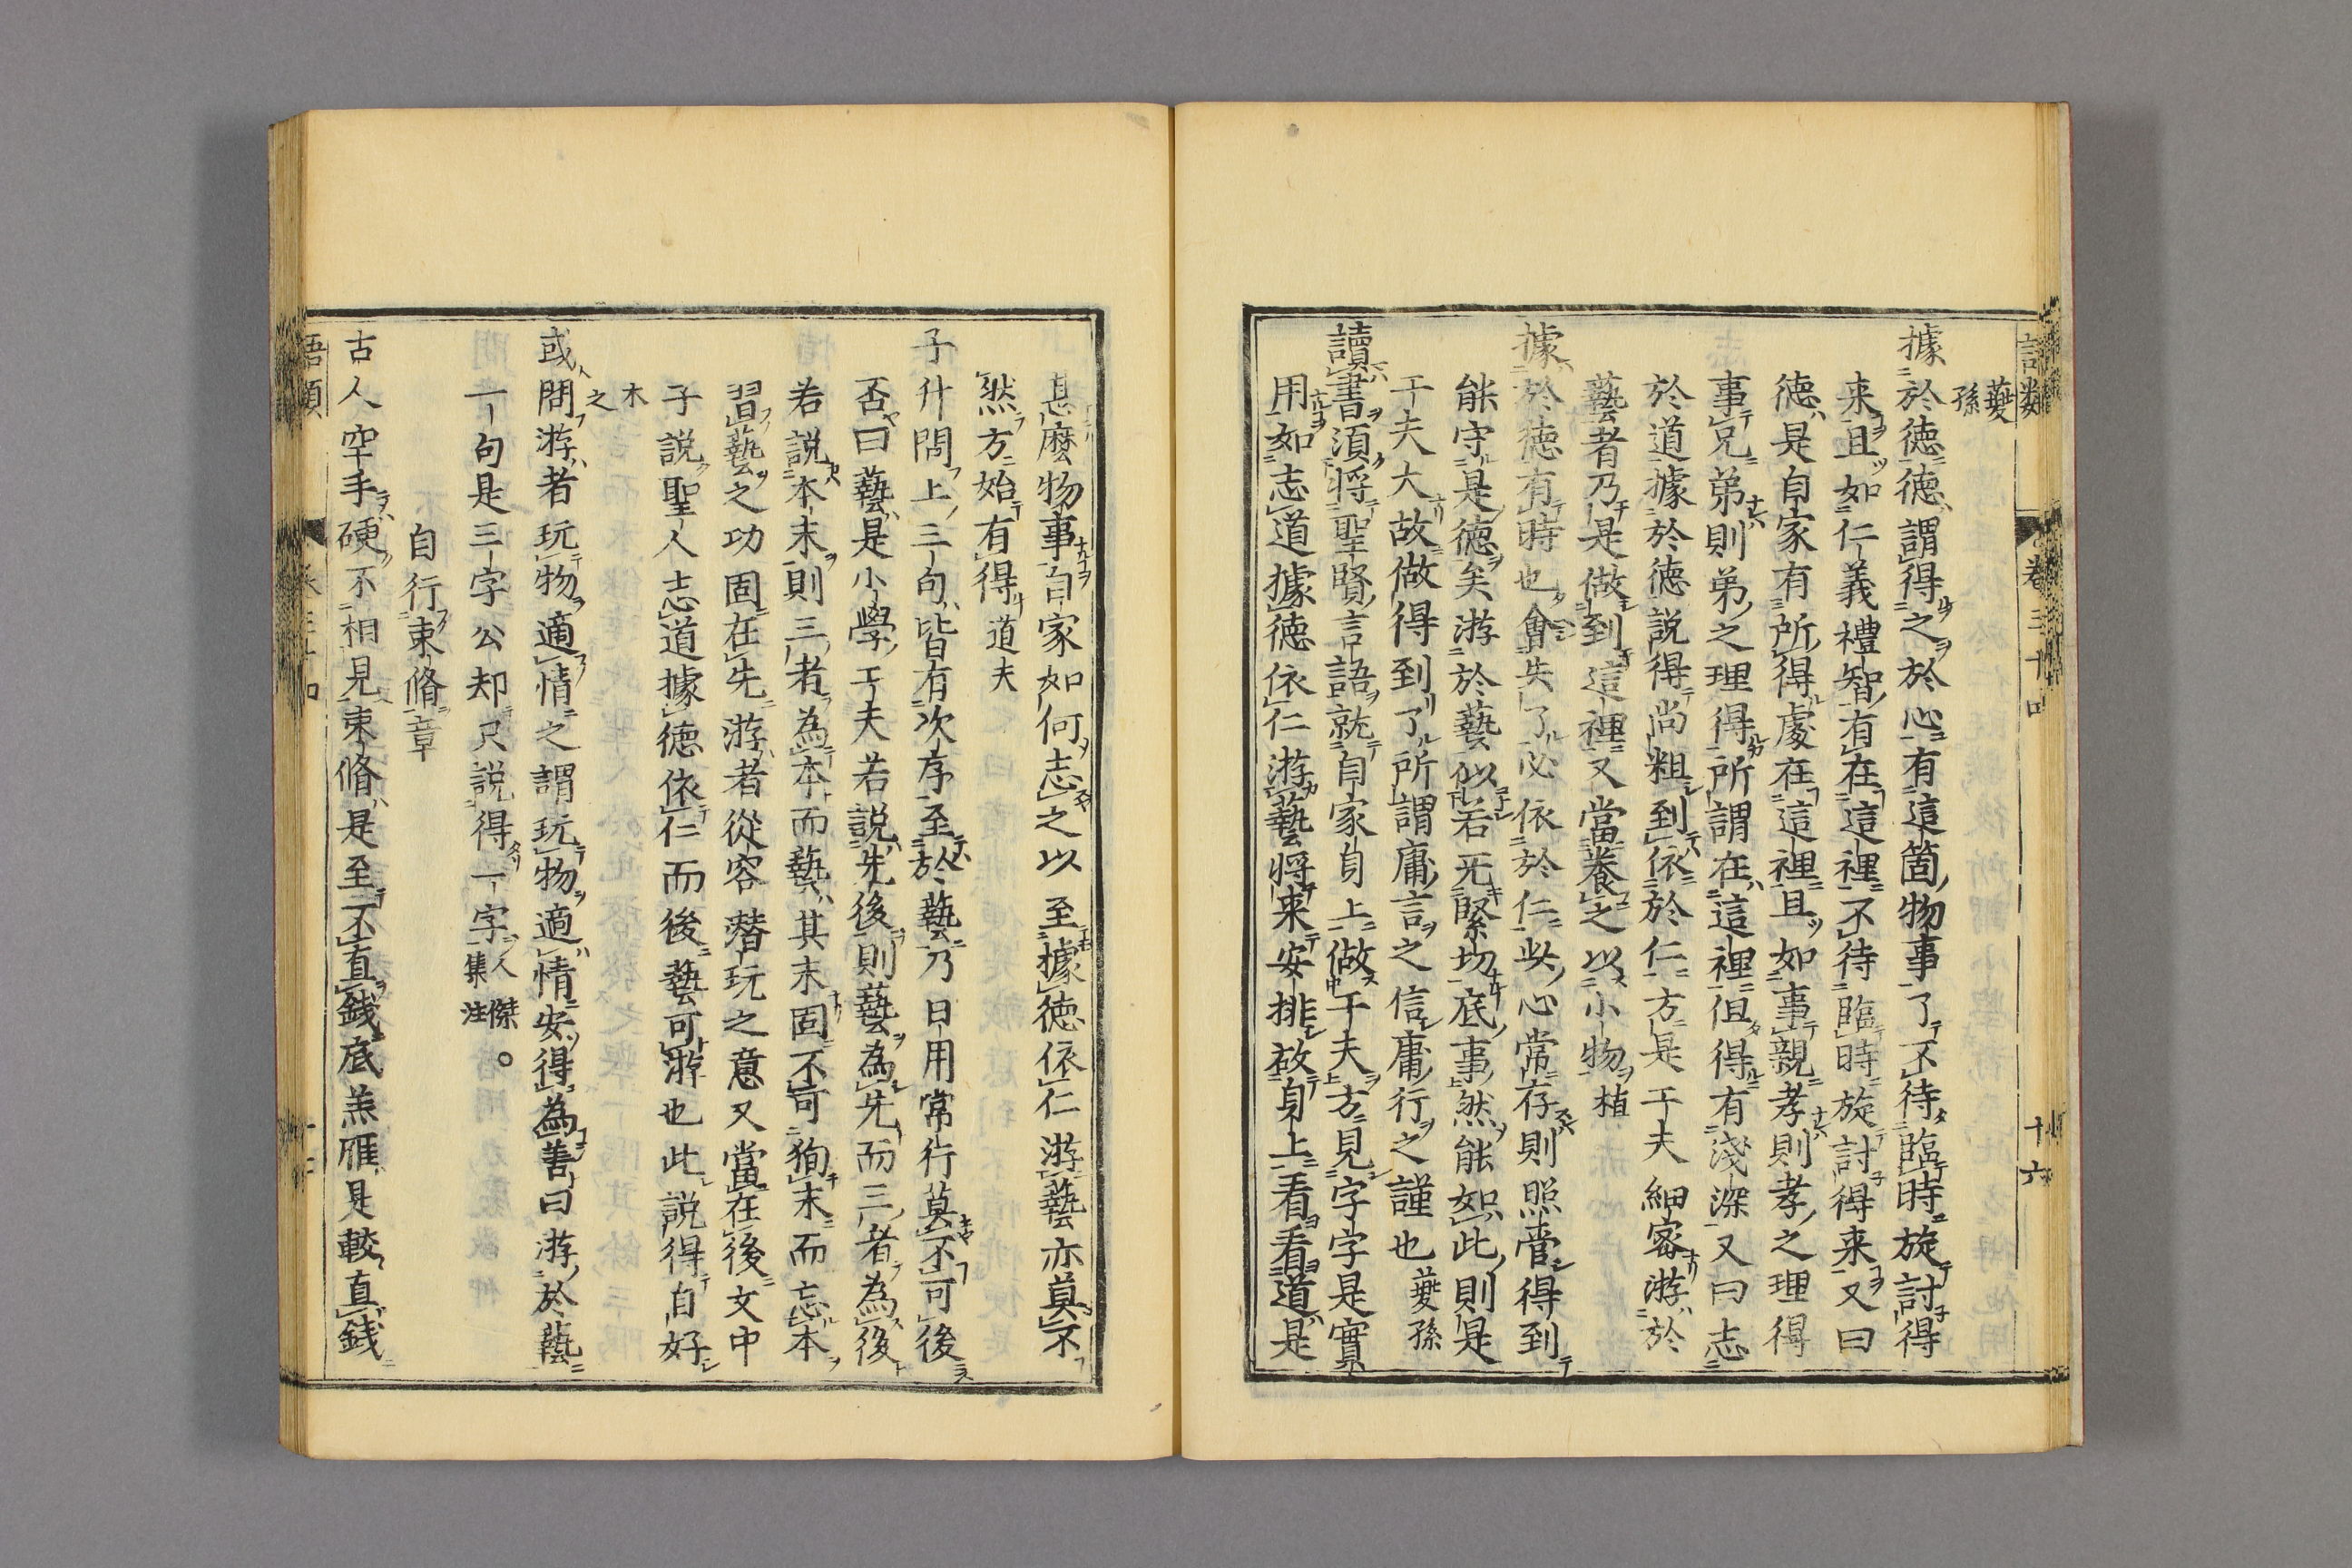 語類　卷三十四　十六
夔孫
據於德德謂得之於心有這箇物事了不待臨時旋討得
来且如仁義禮智有在這裡不待臨時旋討得来又曰
德是自家有所得處在這裡且如事親孝則孝之理得
事兄弟則弟之理得所謂在這裡但得有淺深又曰志
於道據於德説得尚粗到依於仁方是工夫細密游於
藝者乃是做到這裡又當養之以小物植
據於德有時也會失了必依於仁此心常存則照管得到
能守是德矣游於藝似若无緊切底事然能如此則是
工夫大故做得到了所謂庸言之信庸行之謹也夔孫
讀書須將聖賢言語就自家身上做工夫方見字字是實
用如志道據德依仁游藝將来安排放身上看看道是
甚麼物事自家如何志之以至據德依仁游藝亦莫不
然方始有得道夫
子升問上三句皆有次序至於藝乃日用常行莫不可後
否曰藝是小學工夫若説先後則藝為先而三者為後
若説本末則三者為本而藝其末固不可徇末而忘本
習藝之功固在先游者從容潜玩之意又當在後文中
子説聖人志道據德依仁而後藝可游也此説得自好
木之
或問游者玩物適情之謂玩物適情安得為善曰游於藝
一句是三字公却只説得一字人傑集注○
自行束脩章
古人空手硬不相見束脩是至不直錢底羔雁是較直錢
語類